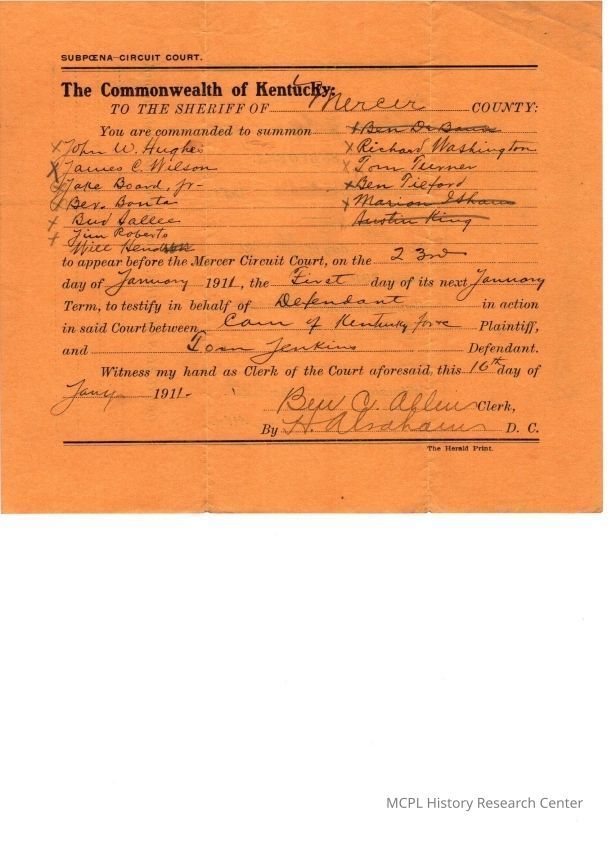 SUBPŒNA—CIRCUIT COURT.
The Commonwealth of Kentucky:
TO THE SHERIFF OF Mercer COUNTY:
You are commanded to summon x Ben De Baun
x John W. Hughes x Richard Washington
x James C. Wilson x Tom Turner
x Jake Board, Jr- x Ben Tilford
x Bev. Bonta x Marion Isham
x Bud Sallee Austin King
x Jim Roberts
Will
to appear before the Mercer Circuit Court, on the 23rd
day of January 1911, the First day of its next January
Term, to testify in behalf of Defendant in action
in said Court between Com of Kentucky Plaintiff,
and Jenkins Defendant.
Witness my hand as Clerk of the Court aforesaid, this 16th day of
Jany 1911.
Ben C. Allen Clerk,
By H. Abrahams D. C.
The Herald Print.
MCPL History Research Center